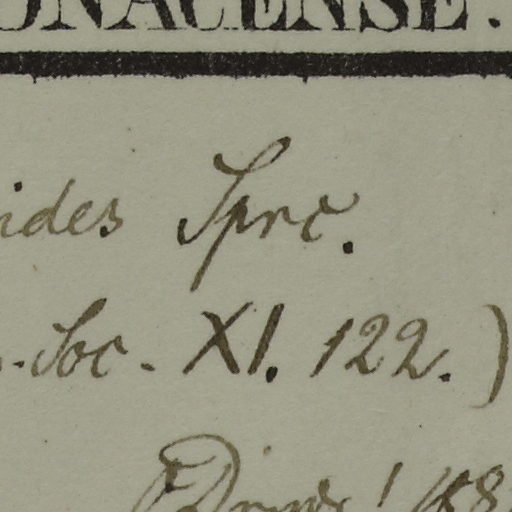 ONACENSE.
ides Spre.
Soc. XI. 122.)